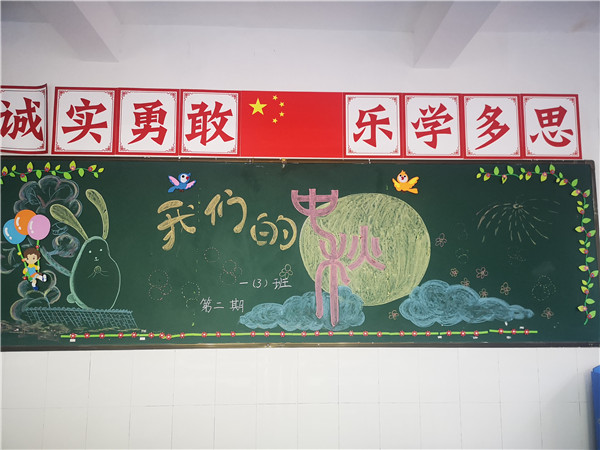 诚实勇敢 乐学多思
我们的中秋
一(3)班
第二期